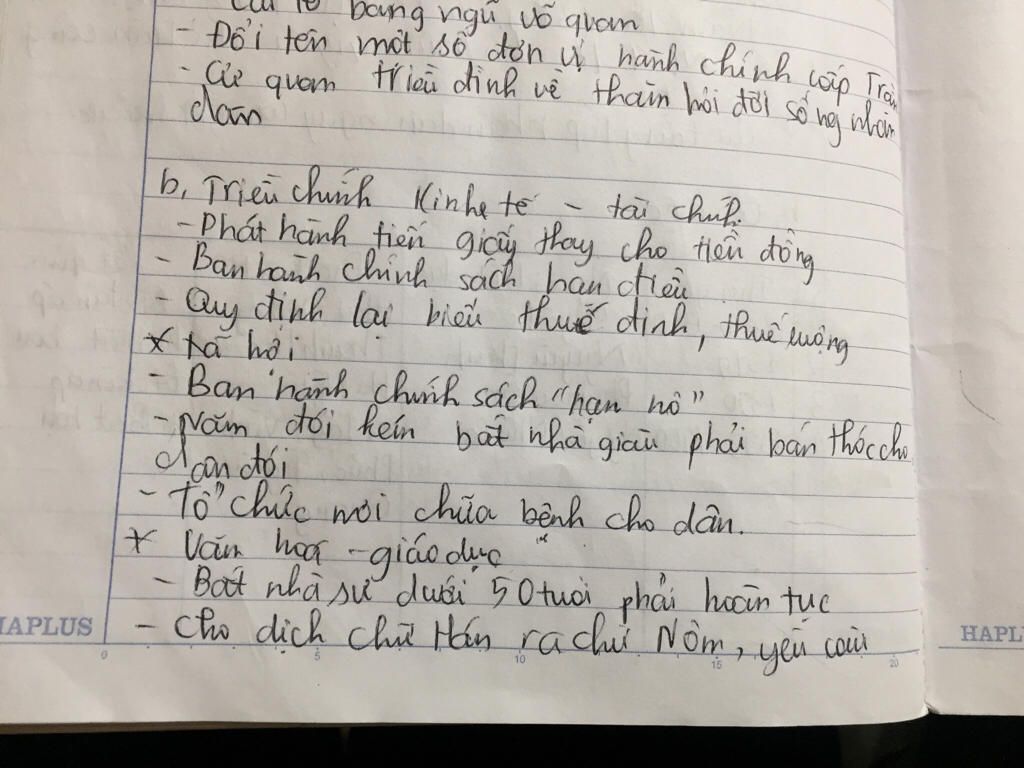 Cải tổ bang ngũ võ quan
- Đổi tên một số đơn vị hành chính cấp Trấn
- Cử quan triều đình về thăm hỏi đời sống nhân
dân
b, Triều chính Kinh tế - tài chính.
- Phát hành tiền giấy thay cho tiền đồng
- Ban hành chính sách hạn điền
- Quy định lại biểu thuế đinh, thuế ruộng
* Xã hội
- Ban hành chính sách "hạn nô"
- Năm đói kén bắt nhà giàu phải bán thóc cho
dân đói
- Tổ chức nơi chữa bệnh cho dân.
* Văn hoá - giáo dục
- Bắt nhà sư dưới 50 tuổi phải hoàn tục
- Cho dịch chữ Hán ra chữ Nôm, yêu cầu
HAPLUS
HAPL
0 5 10 15 20